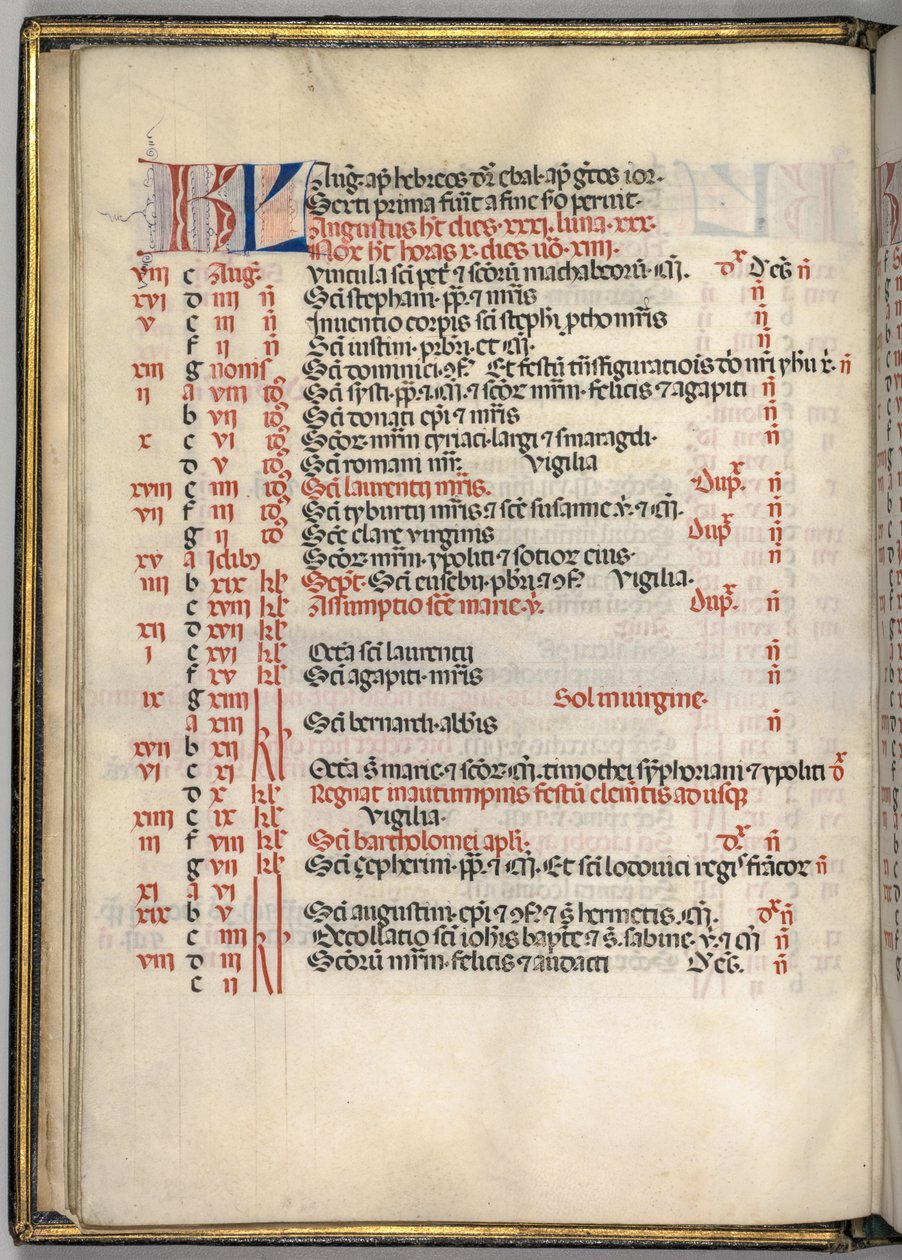 KL Aug̃. ap̃ hebreos dr̃ ebal. ap̃ gr̃cos ior.
Serti prima fiũt a fine s̃o periut.
Augustus ht̃ dies. xxxi. luna. xxx.
Nox ht̃ horas x. dies ũo. xiiii.
viii c Aug̃. Vincula sc̃i pet̃ ⁊ sc̃orũ machabeorũ. m̃. ñ
xvi d iiii ñ Sc̃i stephani. pp̃. ⁊ mr̃is ñ
v e iii ñ Inuentio corpis sc̃i stephi ñ
f ii ñ Sc̃i iustini. prbr̃i. et m̃. ñ
xiii g nonis Sc̃i dominici. ꝯf. Et festũ ñ
ii a viii id⁹ Sc̃i systi. pp̃. ⁊ m̃. ⁊ sc̃or mr̃m. felicis ⁊ agapiti ñ
b vii id⁹ Sc̃i donati ep̃i ⁊ mr̃is ñ
x c vi id⁹ Sc̃or. mr̃m cyriaci. largi ⁊ smaragdi. ñ
d v id⁹ Sc̃i romani mr̃. Vigilia
xviii e iiii id⁹ Sc̃i laurentij mr̃is. Dup̃. ñ
vii f iii id⁹ Sc̃i tyburtij mr̃is ⁊ sc̃e susanne ṽ. ⁊ m̃. ñ
g ii id⁹ Sc̃e clare virginis Dup̃ ñ
xv a Idib⁹ Sc̃or. mr̃m. ypoliti ⁊ sotior eius. ñ
iiii b xix kl̃ Sept̃. Sc̃i eusebij. pbr̃i. ⁊ ꝯf. Vigilia.
c xviii kl̃ Assumptio sc̃e marie. ṽ. Dup̃. ñ
xii d xvii kl̃
i e xvi kl̃ Octa sc̃i laurentij ñ
f xv kl̃ Sc̃i agapiti. mr̃is ñ
ix g xiiii kl̃ Sol in uirgine.
a xiii Sc̃i bernardi. abbis ñ
xvii b xii
vi c xi Octa s̃ marie. ⁊ sc̃or. m̃. timothei sỹphoriani ⁊ ypoliti
d x kl̃ Regnat in autumpnis festũ clem̃tis ad usq̃
xiiii e ix kl̃ Vigilia.
iii f viii kl̃ Sc̃i bartholomei apl̃i. ñ
g vii kl̃ Sc̃i çepherini. pp̃. ⁊ m̃. Et sc̃i lodouici regis frãcor ñ
xi a vi
xix b v Sc̃i augustini. ep̃i ⁊ ꝯf. ⁊ s̃ hermetis. m̃. ñ
c iiii kl̃ Decollatio sc̃i ioh̃is bapt̃e ⁊ s̃. sabine. ṽ. ⁊ m̃ ñ
viii d iii Sc̃orũ mr̃m. felicis ⁊ audacti ñ
e ii